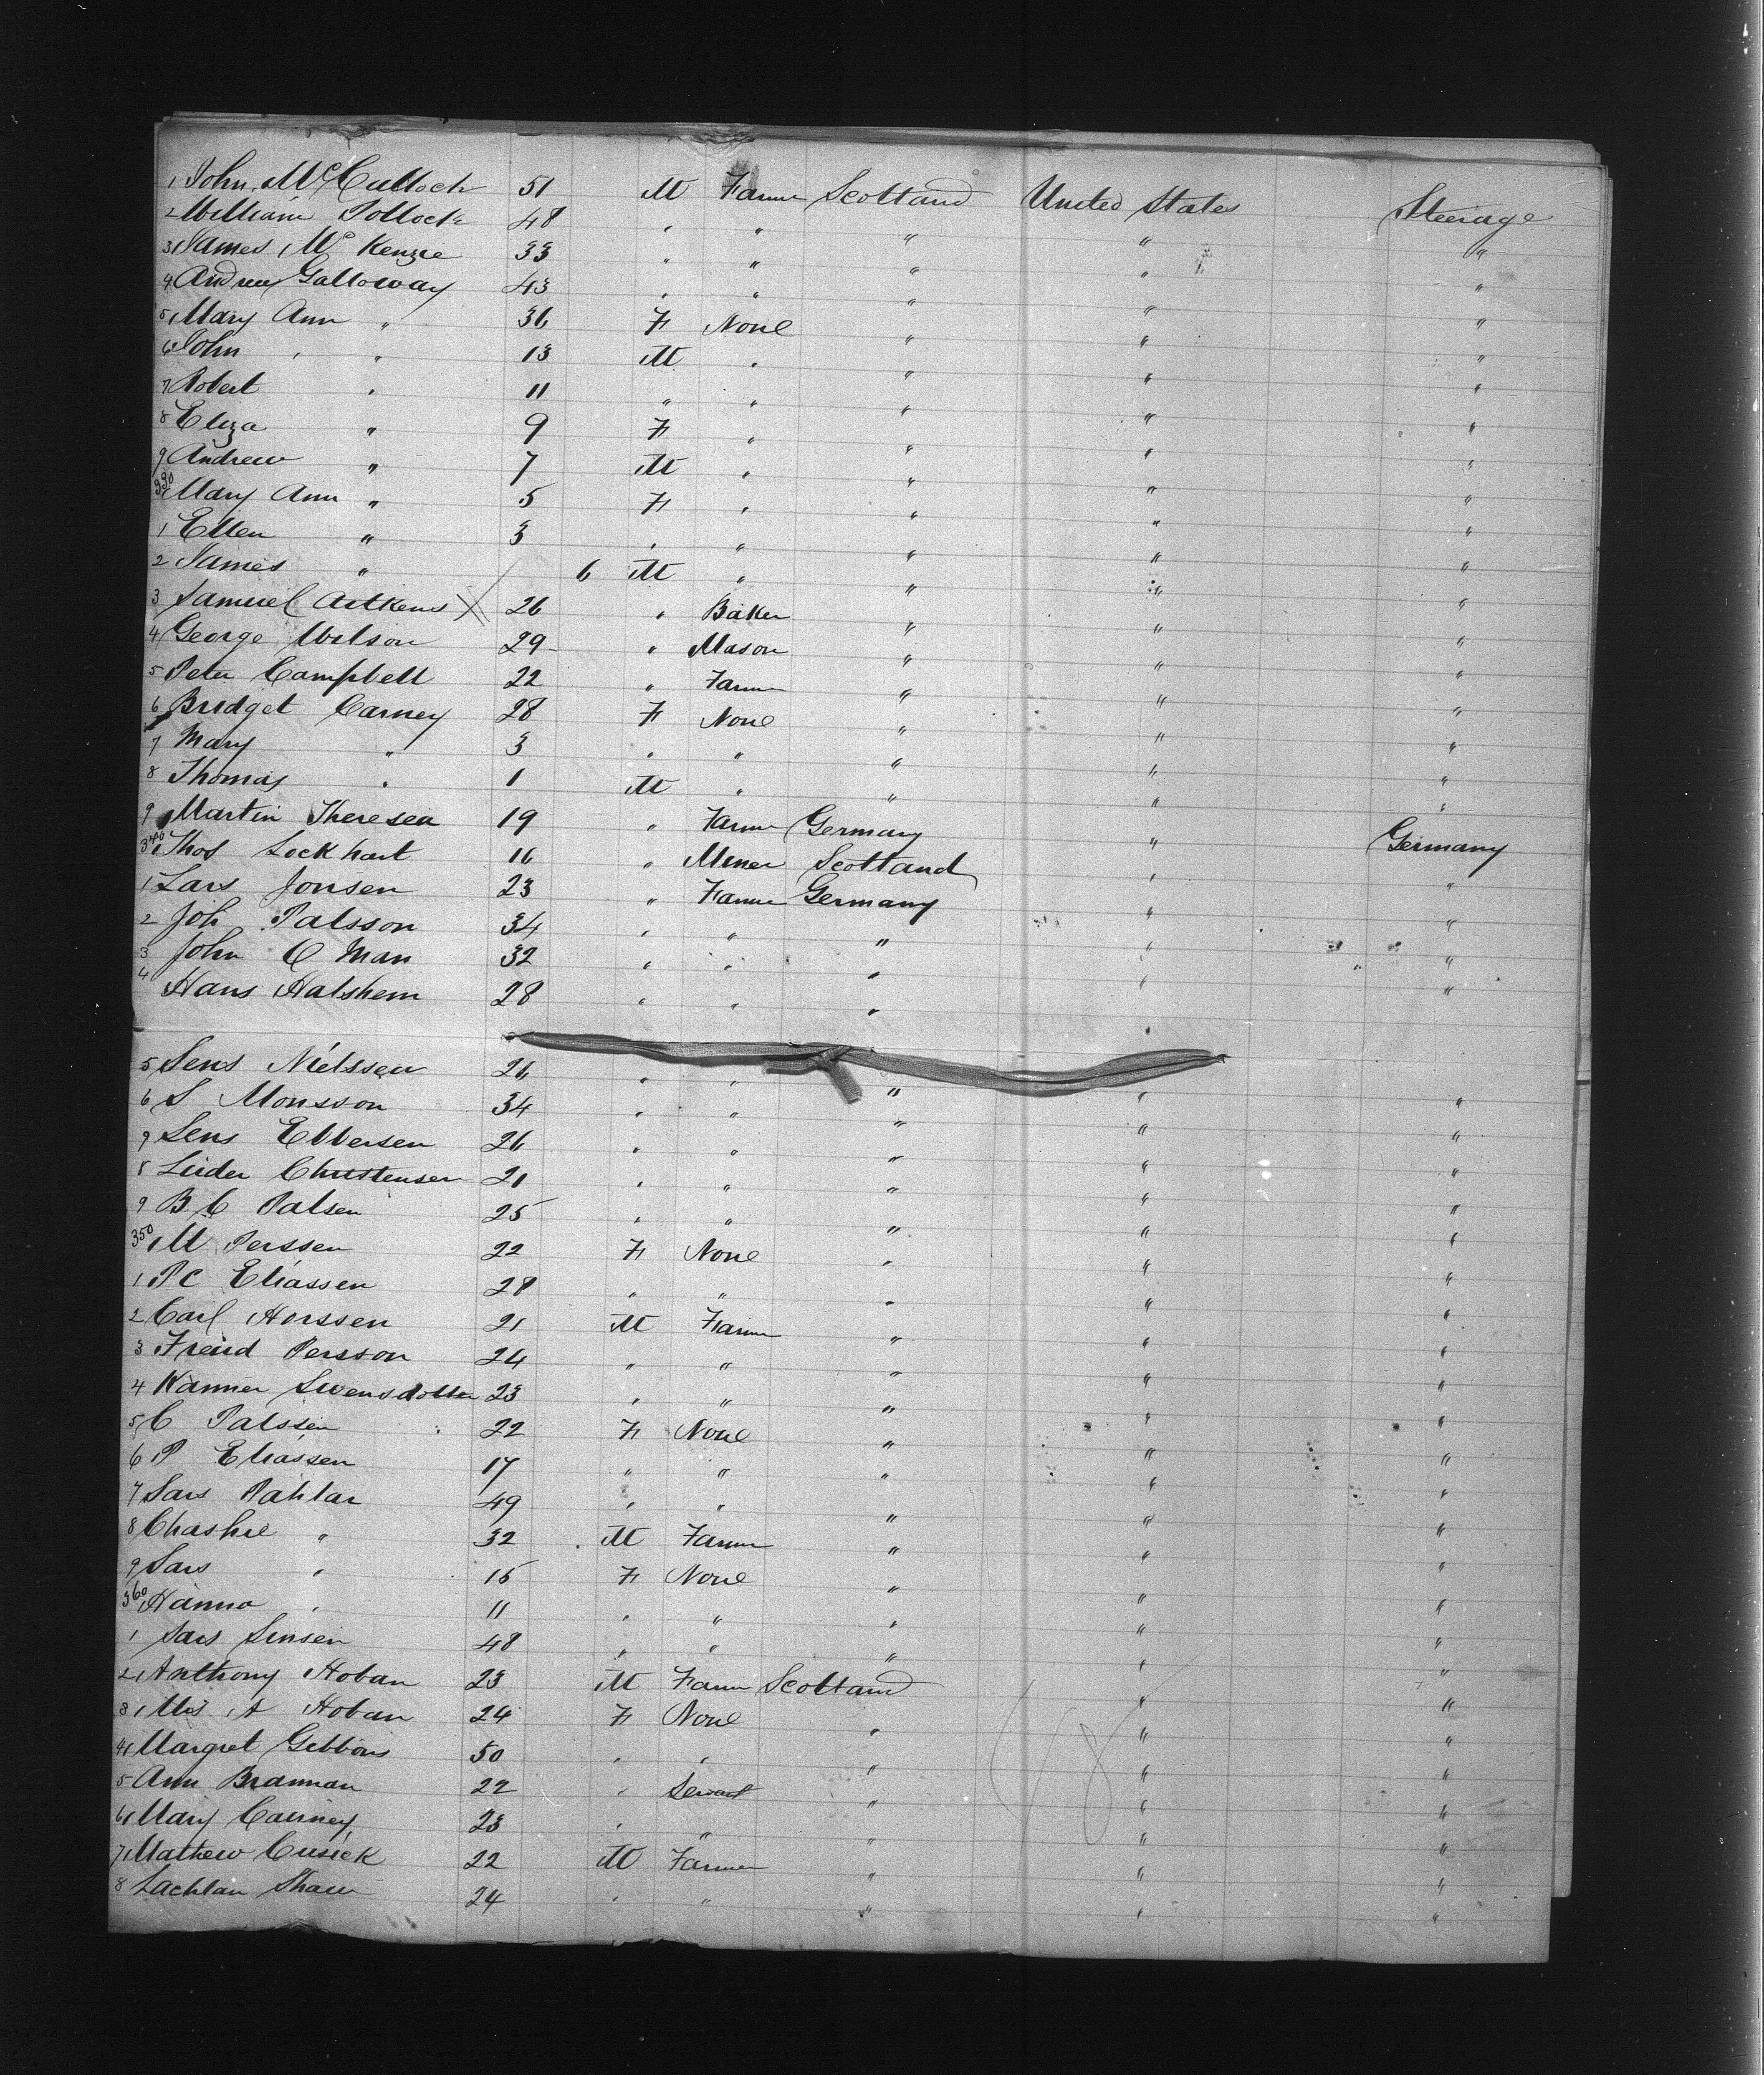 1 John McCulloch 51 M Farmer Scotland United States Steerage
2 William Pollock 48 " " " " "
3 James McKenzie 33 " " " " "
4 Andrew Galloway 43 " " " " "
5 Mary Ann " 36 F None " " "
6 John " " 13 M " " " "
7 Robert " 11 " " " " "
8 Eliza " 9 F " " " "
9 Andrew " 7 M " " " "
330 Mary Ann " 5 F " " " "
1 Ellen " 3 " " " " "
2 James " 6 M " " " "
3 Samuel Aitkens X 26 " Baker " " "
4 George Wilson 29 " Mason " " "
5 Peter Campbell 22 " Farmer " " "
6 Bridget Carney 28 F None " " "
7 Mary " 3 " " " " "
8 Thomas " 1 M " " " "
9 Martin Theresea 19 " Farmer Germany " Germany
340 Thos Lockhart 16 " Miner Scotland " "
1 Lars Jonsen 23 " Farmer Germany " "
2 Joh Palsson 34 " " " " "
3 John O Man 32 " " " " "
4 Hans Halshem 28 " " " "
5 Jens Nielssen 26 " " " " "
6 S Monsson 34 " " " " "
7 Jens Ebbersen 26 " " " " "
8 Lüder Christensen 21 " " " " "
9 B C Palsen 25 " " " " "
350 M Perssen 22 F None " " "
1 P C Eliassen 28 " " " " "
2 Carl Horssen 21 M Farmer " " "
3 Freid Persson 24 " " " " "
4 Hanner Swensdotter 23 " " " " "
5 C Palssen 22 F None " " "
6 P Eliassen 17 " " " " "
7 Lars Pahlar 49 " " " " "
8 " 32 M Farmer " " "
9 Lars " 15 F None " " "
360 Hanna " 11 " " " " "
1 Lars Jensen 48 " " " " "
2 Anthony Hoban 23 M Farmer Scotland " "
3 Mrs A Hoban 24 F None " " "
4 Margret Gibbons 50 " " " " "
5 Ann Brannan 22 " Servant " " "
6 Mary Cairney 23 " " " " "
7 Mathew Cusick 22 M Farmer " " "
8 Lachlan Shaw 24 " " " " "